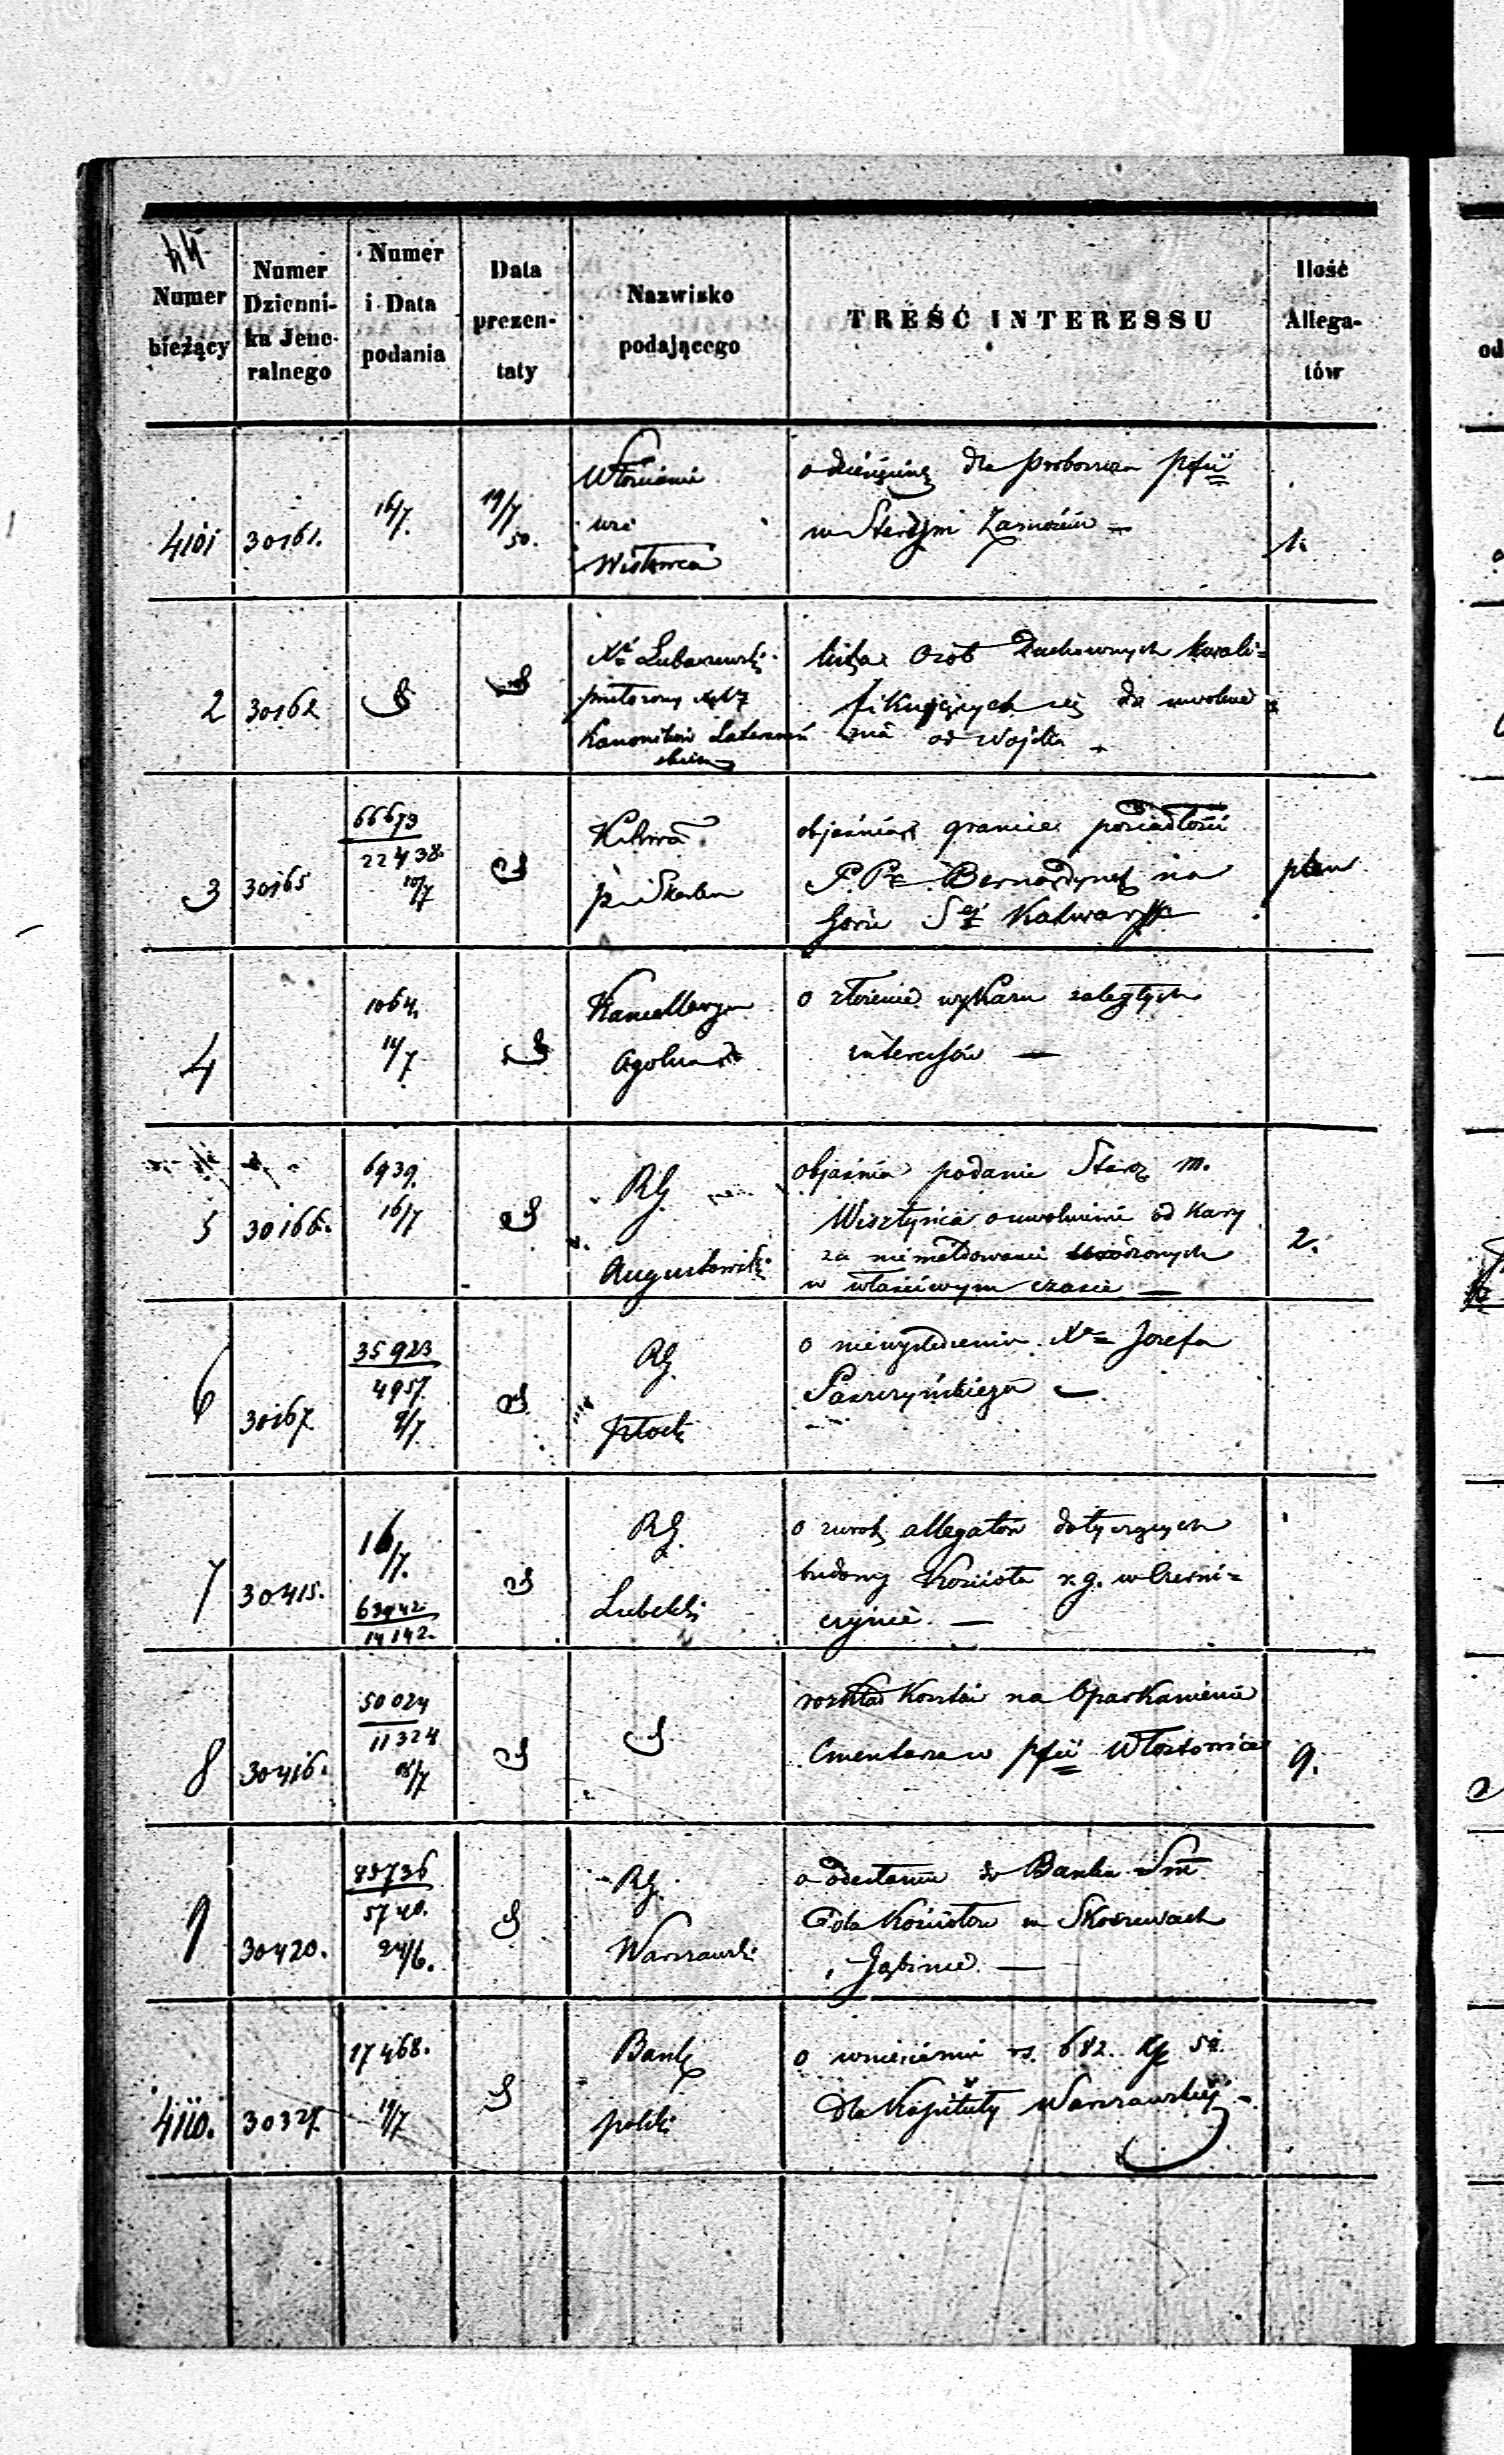 44
Numer
bieżący
Numer
Dzienni-
ka Jene-
ralnego
Numer
i Data
podania
Data
prezen-
taty
Nazwisko
podającego
TREŚĆ INTERESSU
Ilość
Allega-
tów
4101
30161.
16/7.
19/7
50.
Włościanie
wsi
o dziesięcinę dla proboszcza pfii
w Starym Zamościu —
1.
2
30162
Xdz Lubaszewski
Kanoników Laterań
skich
lista Osób Duchownych kwali=
fikujących się do uwolnie=
nia od Wojska
3
30165
66673
22438.
10/7
Skarbu
objaśnia granice posiadłości
P.P. Bernardynek na
Górze Sej Kalwaryi
plan
4
1064.
14/7
Kancellarya
ogólna
o złożenie wykazu zaległych
interesów —
5
30166.
6939.
16/7
RG.
Augustowski
objaśnia podanie Staroz. m.
Wisztyńca o uwolnienie od kary
za niemeldowanie urodzonych
w właściwym czasie —
2.
6
30167
35923
4957.
9/7
RG.
Płocki
o niewyśledzeniu Xdza Jozefa
7
30415.
16/7.
63942
14142.
RG.
Lubelski
o zwrot allegatów dotyczących
budowy Kościoła r.g. w Cześni=
8
30416.
50024
11324
18/7
rozkład kosztów na Oparkanienie
Cmentarza w pfii Włostowice
9.
9
30420.
85736
5740.
24/6.
RG.
Warszawski
o odesłaniu do Banku Sm̄
dla Kościołów w Skoszewach
i Gąbinie —
4110.
30327
17468.
19/7
Bank
polski
o wniesieniu rs. 682. k. 50.
dla Kapituły Warszawskiej —